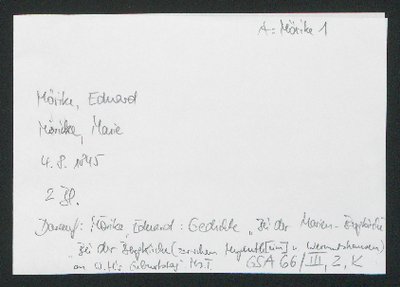 A: Mörike 1
Mörike, Eduard
Mörike, Marie
4. 8. 1845
2 Bl.
Darauf: Mörike, Eduard: Gedichte „Bei der Marien-Bergkirche
„Bei der Bergkirche (zwischen Mergenth[eim] u. Wermutshausen)
an W. H's Geburtstag" Ms. I GSA 66/III, 2, K